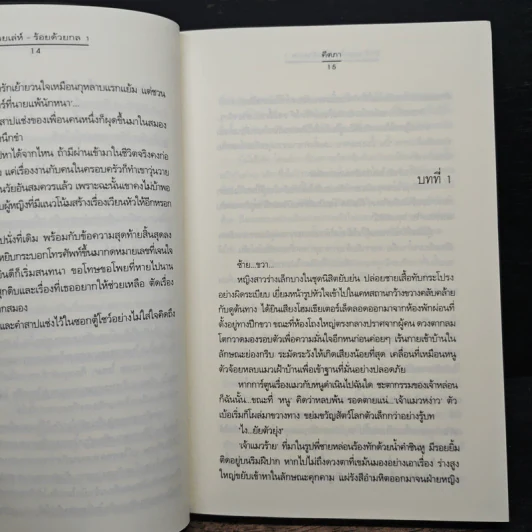 ายเล่ห์ - ร้อยด้วยกล 1
14
รักเย้ายวนใจเหมือนกุหลาบแรกแย้ม แต่ชวน
ร์ที่นายแพ้นักหนา'...
าสาปแช่งของเพื่อนคนหนึ่งก็ผุดขึ้นมาในสมอง
นึกขำ
ปหาได้จากไหน ถ้ามีผ่านเข้ามาในชีวิตจริงคงก่อ
แต่เรื่องงานกับคนในครอบครัวก็ทำเขาวุ่นวาย
นวัยอันสมควรแล้ว เพราะฉะนั้นเขาคงไม่บ้าพอ
บผู้หญิงที่มีแนวโน้มสร้างเรื่องเวียนหัวให้อีกหรอก
ปนั่งที่เดิม พร้อมกับข้อความสุดท้ายสิ้นสุดลง
หยิบกระบอกโทรศัพท์ขึ้นมากดหมายเลขที่เจนใจ
ยินดีก็เริ่มสนทนา ขอโทษขอโพยที่หายไปนาน
ทุกดิบและเรื่องที่เธออยากให้ช่วยเหลือ ตัดเรื่อง
กสมอง
และคำสาปแช่งไว้ในซอกตู้โชว์อย่างไม่ใส่ใจคิดถึง
คีตภา
15
บทที่ 1
ซ้าย...ขวา...
หญิงสาวร่างเล็กบางในชุดนิสิตยับย่น ปล่อยชายเสื้อทับกระโปรง
อย่างผิดระเบียบ เยี่ยมหน้ารูปหัวใจเข้าไปในเคหสถานกว้างขวางคลับคล้าย
กับดูต้นทาง ได้ยินเสียงโฮมเธียเตอร์เล็ดลอดออกมาจากห้องพักผ่อนที่
ตั้งอยู่ทางปีกขวา ขณะที่ห้องโถงใหญ่ตรงกลางปราศจากผู้คน ดวงตากลม
โตกวาดมองรอบตัวเพื่อความมั่นใจอีกหนก่อนค่อยๆ เร้นกายเข้าบ้านใน
ลักษณะย่องกริบ ระมัดระวังให้เกิดเสียงน้อยที่สุด เคลื่อนที่เหมือนหนู
ตัวจ้อยหลบแมวเฝ้าบ้านเพื่อเข้าฐานที่มั่นอย่างปลอดภัย
หากการ์ตูนเรื่องแมวกับหนูดำเนินไปฉันใด ชะตากรรมของเจ้าหล่อน
ก็ฉันนั้น...ขณะที่ 'หนู' คิดว่าหลบพ้น รอดตายแน่...'เจ้าแมวหง่าว' ตัว
เบ้อเริ่มก็โผล่มาขวางทาง ข่มขวัญสัตว์โลกตัวเล็กกว่าอย่างรู้บท
'ไง...ยัยตัวยุ่ง'
'เจ้าแมวร้าย' ที่มาในรูปพี่ชายหล่อนร้องทักด้วยน้ำคำชินหู มีรอยยิ้ม
ติดอยู่บนริมฝีปาก หากไปไม่ถึงดวงตาที่เขม้นมองอย่างเอาเรื่อง ร่างสูง
ใหญ่ขยับเข้าหาในลักษณะคุกคาม แผ่รังสีอำมหิตออกมาจนฝ่ายหญิง